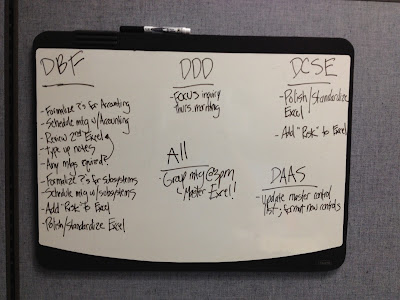 DBF
- Formalize ?'s for Accounting
- Schedule mtg w/Accounting
- Review 2nd Excel
- Type up notes
- Any mtgs required?
- Formalize ?'s for subsystems
- Schedule mtg w/subsystems
- Add "Risk" to Excel
- Polish/Standardize Excel
DDD
- FOCUS inquiry
Thurs. morning
All
- Group mtg @ 3pm
↳ Master Excel!!
DCSE
- Polish/Standardize
Excel
- Add "Risk" to Excel
DAAS
- Update master control
list; format new controls